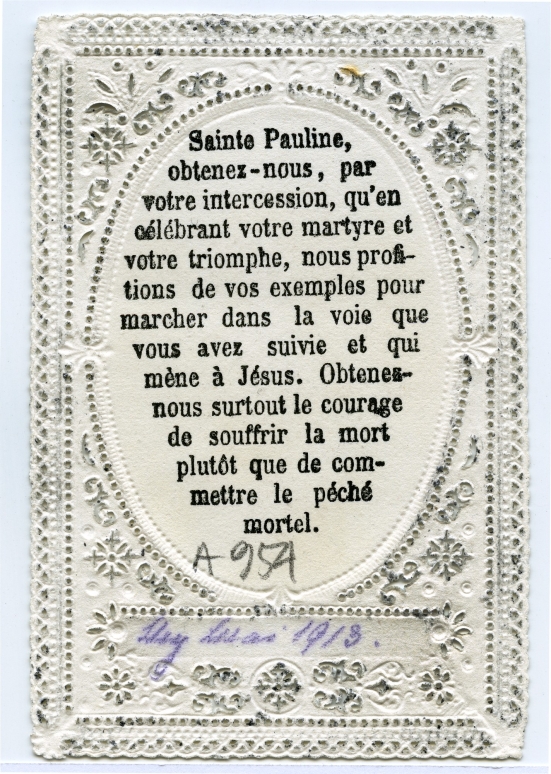 Sainte Pauline,
obtenez-nous, par
votre intercession, qu'en
célébrant votre martyre et
votre triomphe, nous profi-
tions de vos exemples pour
marcher dans la voie que
vous avez suivie et qui
mène à Jésus. Obtenez-
nous surtout le courage
de souffrir la mort
plutôt que de com-
mettre le péché
mortel.
A 954
1913.